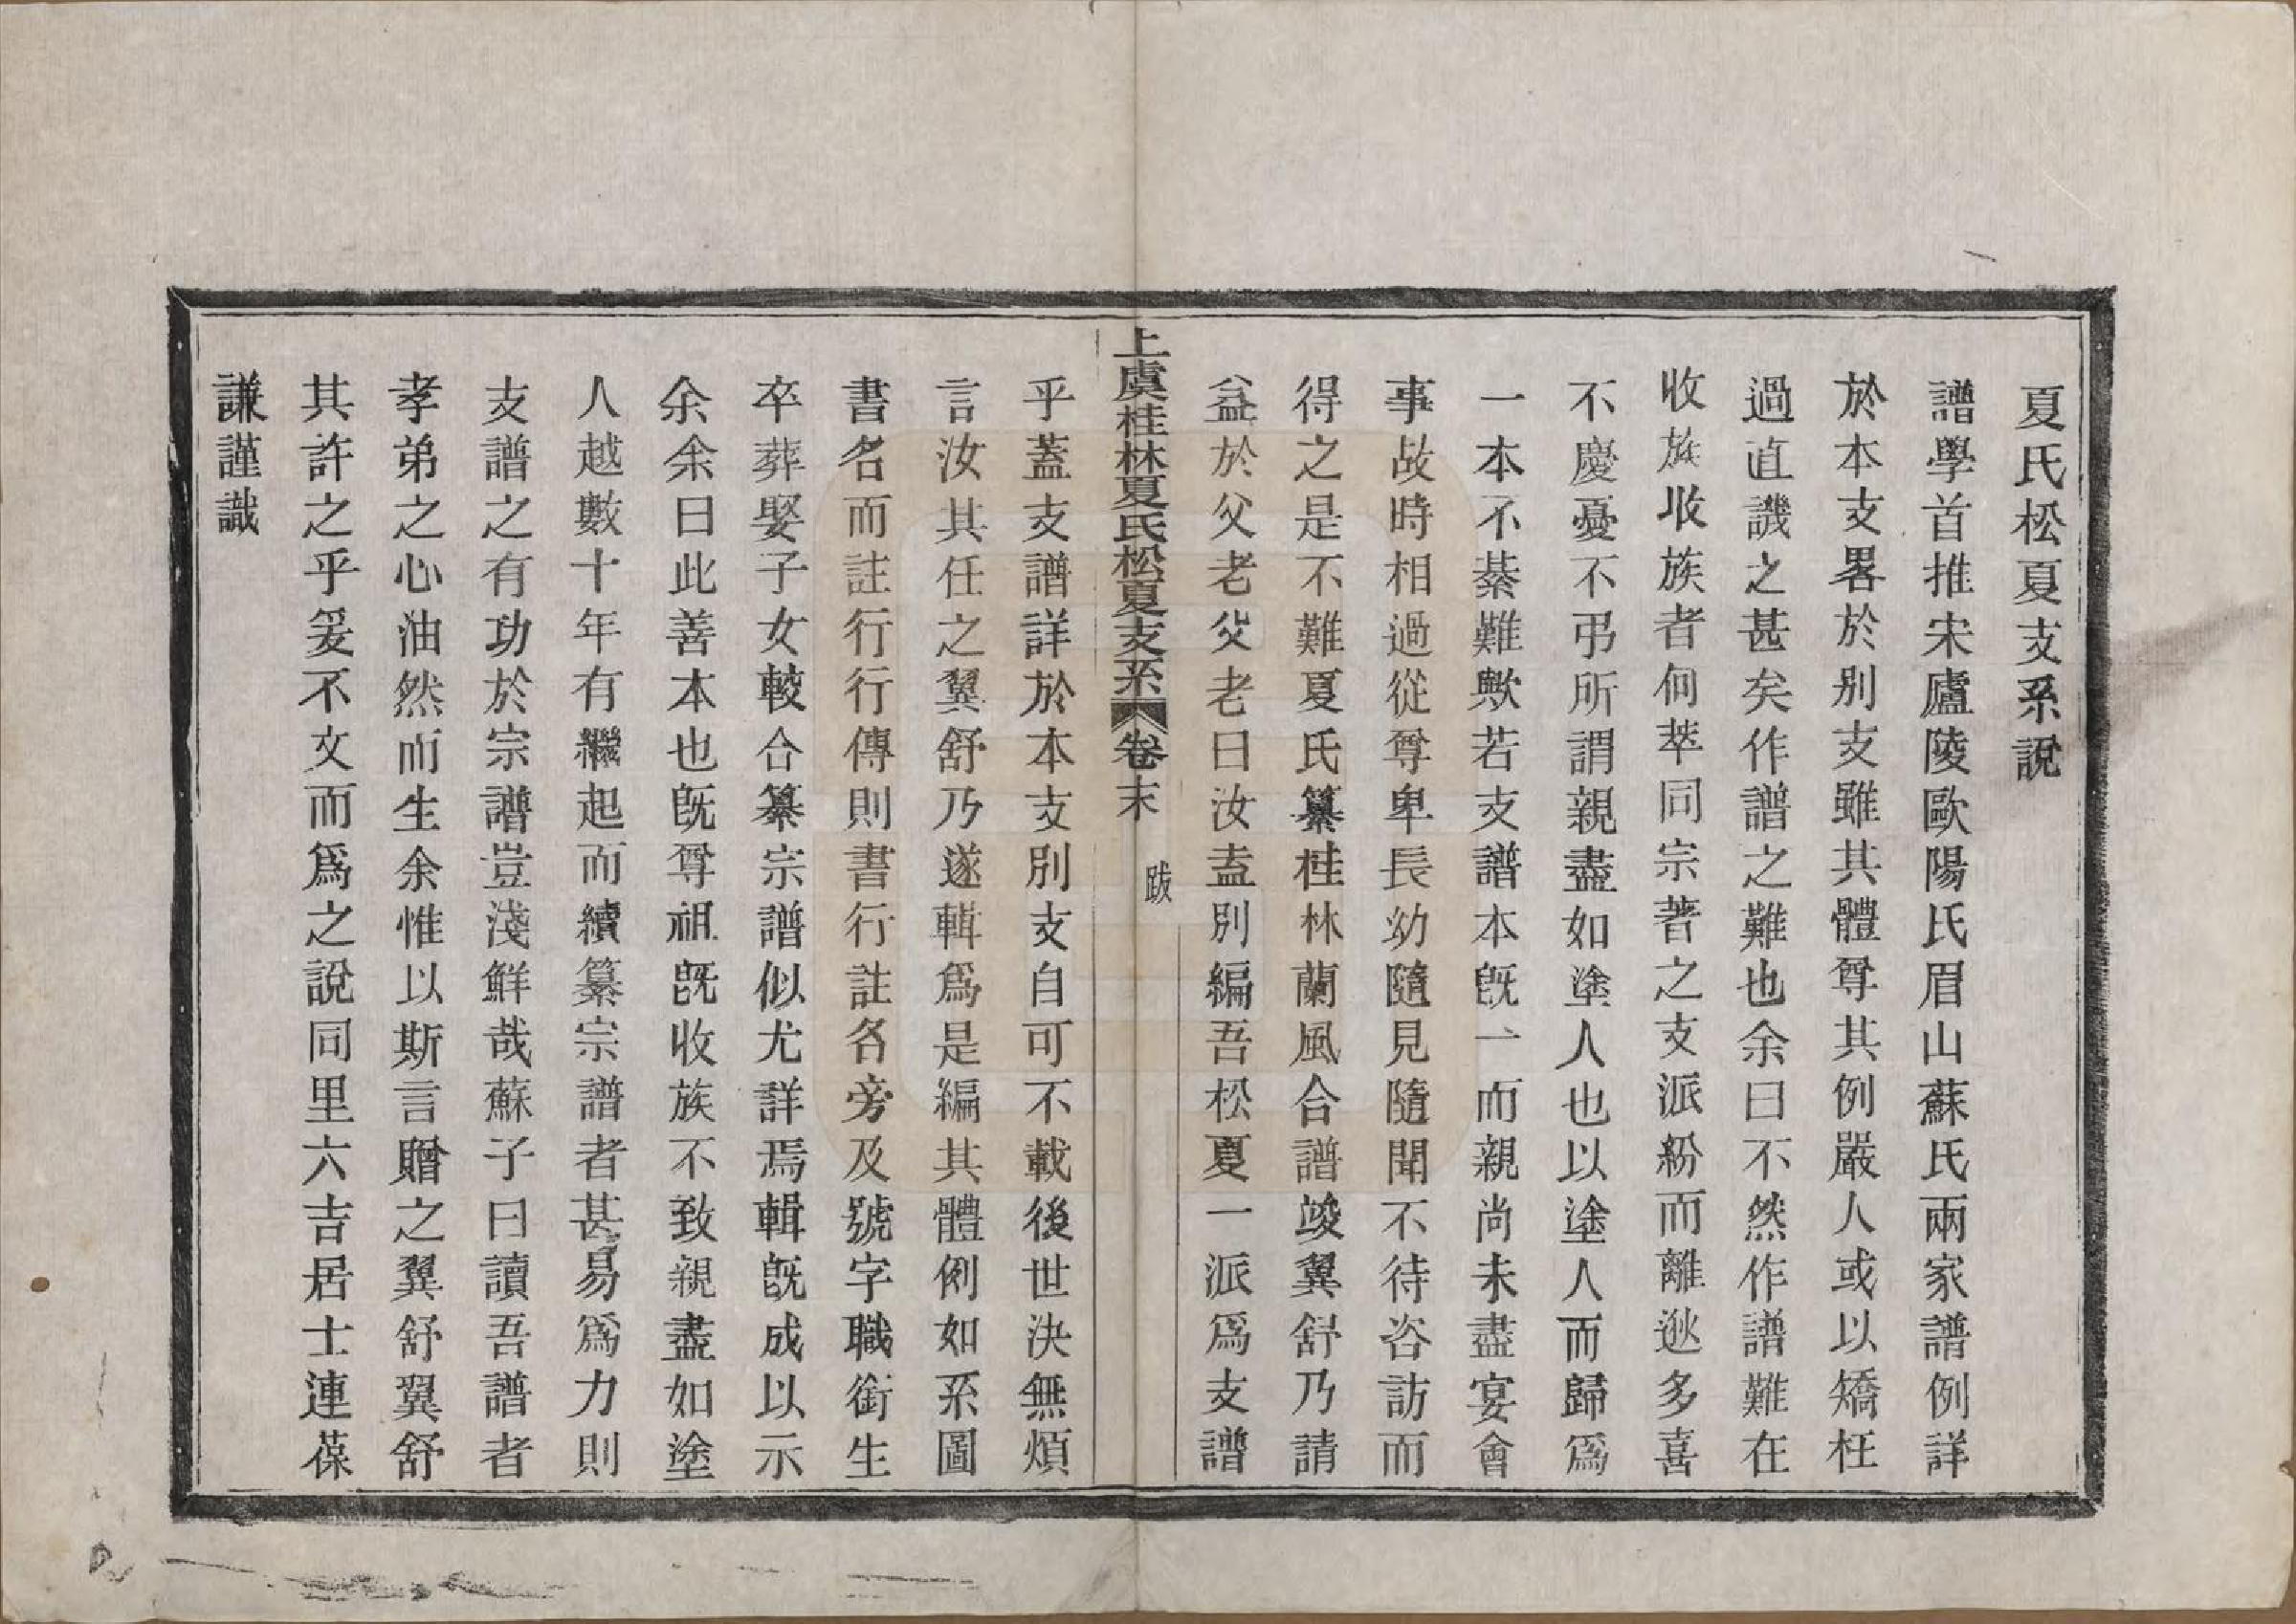 夏氏松夏支系說
譜學首推宋廬陵歐陽氏眉山蘇氏兩家譜例詳
於本支畧於別支雖其體尊其例嚴人或以矯枉
過直譏之甚矣作譜之難也余曰不然作譜難在
收族收族者何萃同宗著之支派紛而離逖多喜
不慶憂不弔所謂親盡如塗人也以塗人而歸爲
一本不綦難歟若支譜本旣一而親尚未盡宴會
事故時相過從尊卑長幼隨見隨聞不待咨訪而
得之是不難夏氏纂桂林蘭風合譜竣翼舒乃請
益於父老父老曰汝盍別編吾松夏一派爲支譜
上虞桂林夏氏松夏支系 卷末 跋
乎蓋支譜詳於本支別支自可不載後世決無煩
言汝其任之翼舒乃遂輯爲是編其體例如系圖
書名而註行行傳則書行註各旁及號字職銜生
卒葬娶子女較合纂宗譜似尤詳焉輯旣成以示
余余曰此善本也旣尊祖旣收族不致親盡如塗
人越數十年有繼起而續纂宗譜者甚易爲力則
支譜之有功於宗譜豈淺鮮哉蘇子曰讀吾譜者
孝弟之心油然而生余惟以斯言贈之翼舒翼舒
其許之乎爰不文而爲之說同里六吉居士連葆
謙謹識